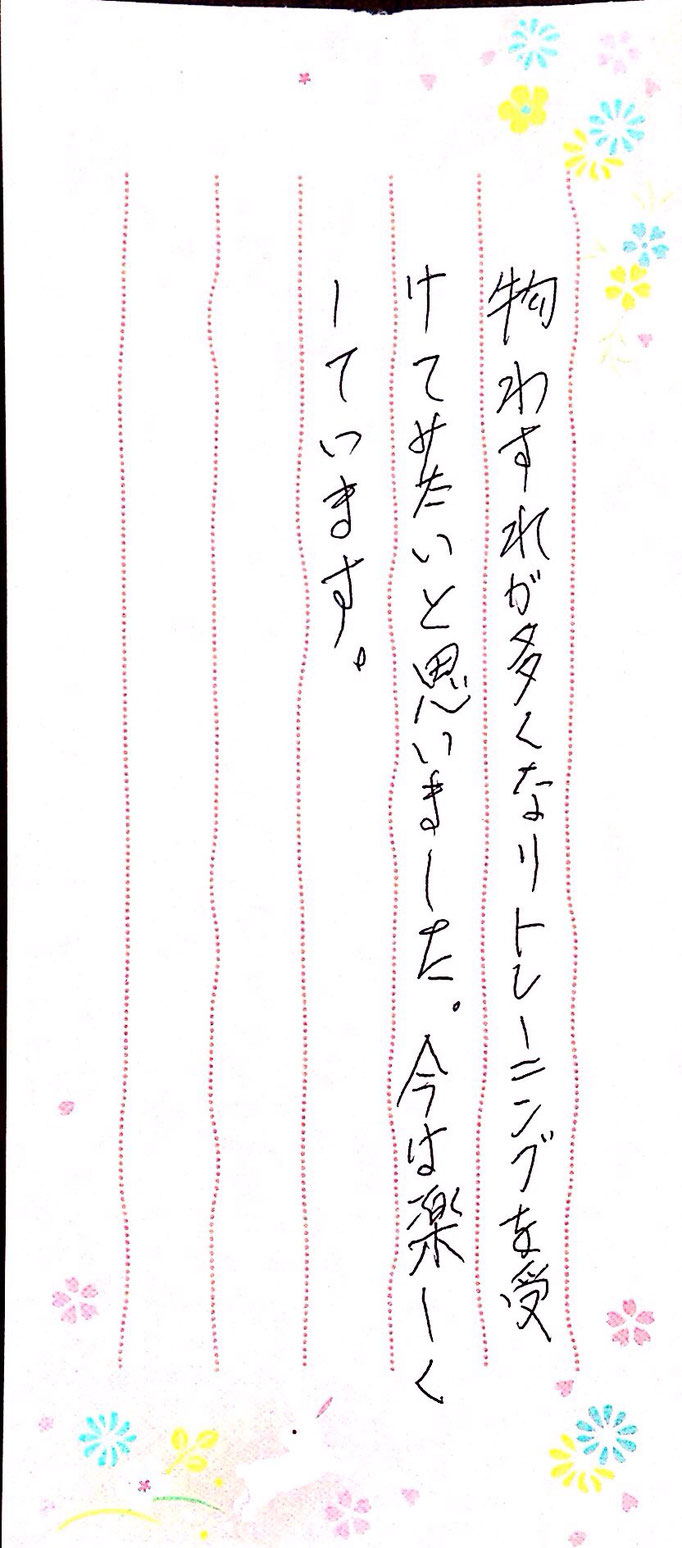 物わすれが多くなりトレーニングを受
けてみたいと思いました。今は楽しく
しています。